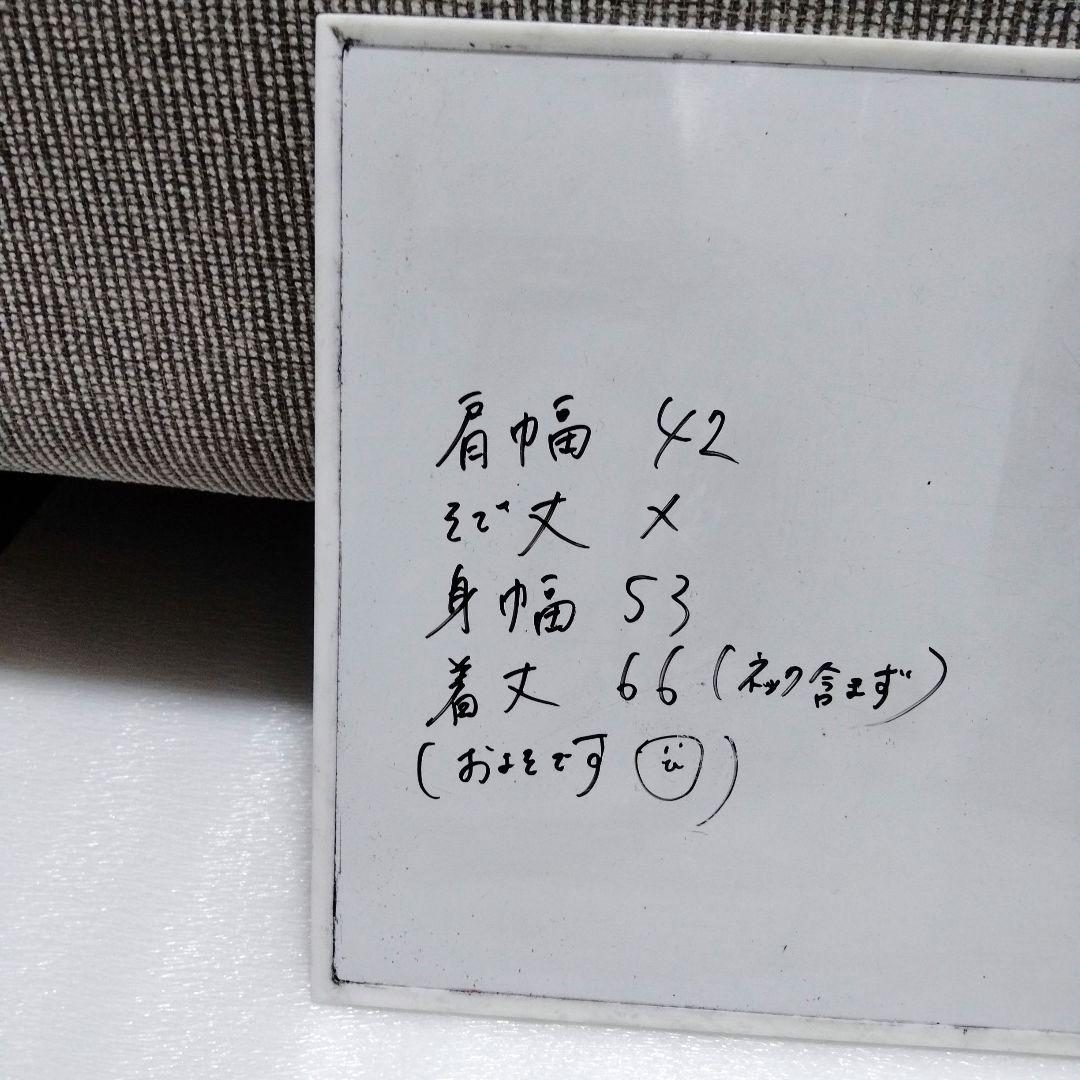 肩巾幅 42
そで丈 ×
身幅 53
着丈 66 (ネック含まず)
(およそです)